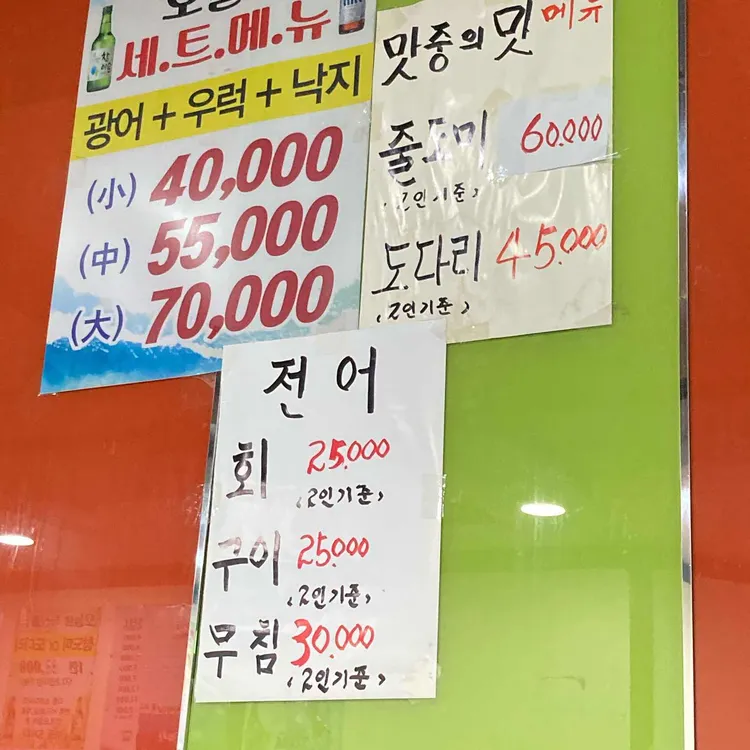 세.트.메.뉴
광어 + 우럭 + 낙지
(小) 40,000
(中) 55,000
(大) 70,000
맛중의 맛 메뉴
줄도미 60.000
(2인기준)
도다리 45.000
(2인기준)
전어
회 25.000
(2인기준)
구이 25.000
(2인기준)
무침 30.000
(2인기준)